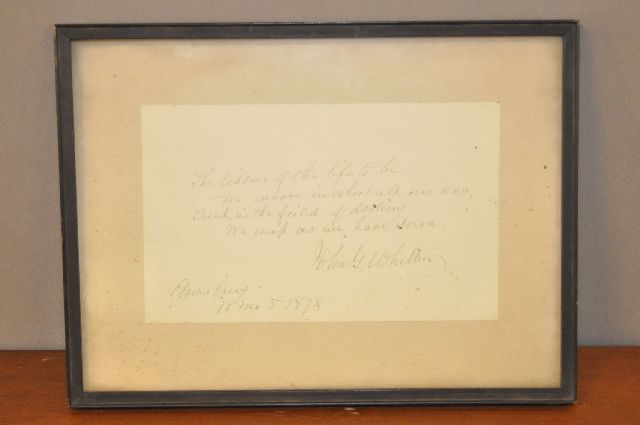 The tissue of the life to be
We weave in colors all our own
And in the field of destiny
We reap as we have sown.
John G. Whittier
Amesbury
Mo 5 1878